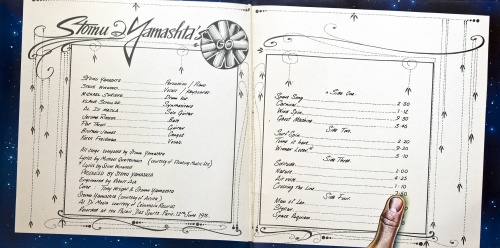 Stomu Yamashta's
GO
Stomu Yamashta Percussion / Piano
Steve Winwood Vocals / Keyboards
Michael Shrieve Drum Kit
Klaus Schulze Synthesizers
Al Di Meola Solo Guitar
Jerome Rimson Bass
Pat Thrall Guitar
Brother James Congas
Karen Friedman Vocal
All songs composed by Stomu Yamashta
Lyrics by Michael Quartermain (courtesy of Floating Music Ltd)
* Lyrics by Steve Winwood
Produced by Stomu Yamashta
Engineered by
Cover Tony Wright & Stomu Yamashta
Stomu Yamashta (courtesy of Arista)
Al Di Meola courtesy of Columbia Records
Recorded at the Palais Des Sports Paris 12th June 1976
Side One
Space Song 2:30
Carnival 1:12
Wind Spin 9:30
Ghost Machine 3:46
Side Two
Surf Spin 2:20
Time is here 9:20
Winner Loser*
Side Three
Solitude
Nature 1:00
Air voice 4:25
Crossing the Line 1:10
7:50
Side Four
Man of Leo
Stellar
Space Requiem